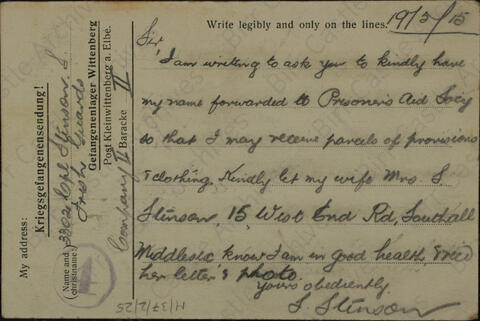 Write legibly and only on the lines. 19/5/15
Sir,
I am writing to ask you to kindly have
my name forwarded to Prisoners Aid Socy
so that I may receive parcels of provisions
& clothing. Kindly let my wife Mrs. S.
Stinson, 15 West End Rd, Southall
Middlesex know I am in good health, & rec'd
her letter & photo.
Yours obediently.
S. Stinson
Kriegsgefangenensendung!
My address:
(Name and christname:) 3302 Cpl Stinson. S.
Irish Guards
Gefangenenlager Wittenberg
Post Kleinwittenberg a. Elbe.
Company II Baracke II
M/37/2/25